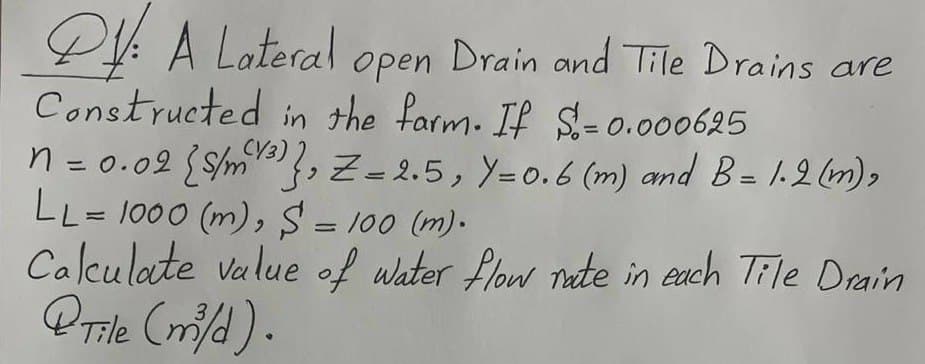 Q1/: A Lateral open Drain and Tile Drains are
Constructed in the farm. If S₀=0.000625
n = 0.02 {S/m^(1/3)}, Z=2.5, Y=0.6 (m) and B= 1.2 (m),
LL= 1000 (m), S = 100 (m).
Calculate value of water flow rate in each Tile Drain
QTile (m³/d).